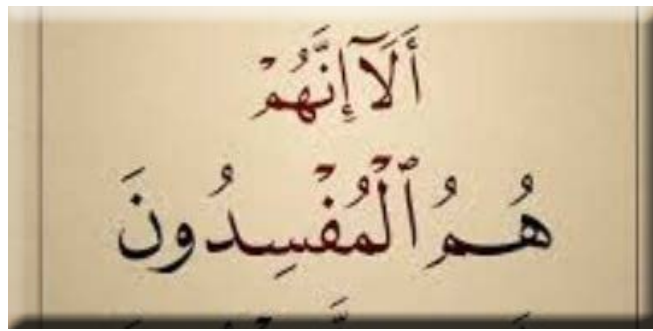 أَلَآ إِنَّهُمْ
هُمُ ٱلْمُفْسِدُونَ